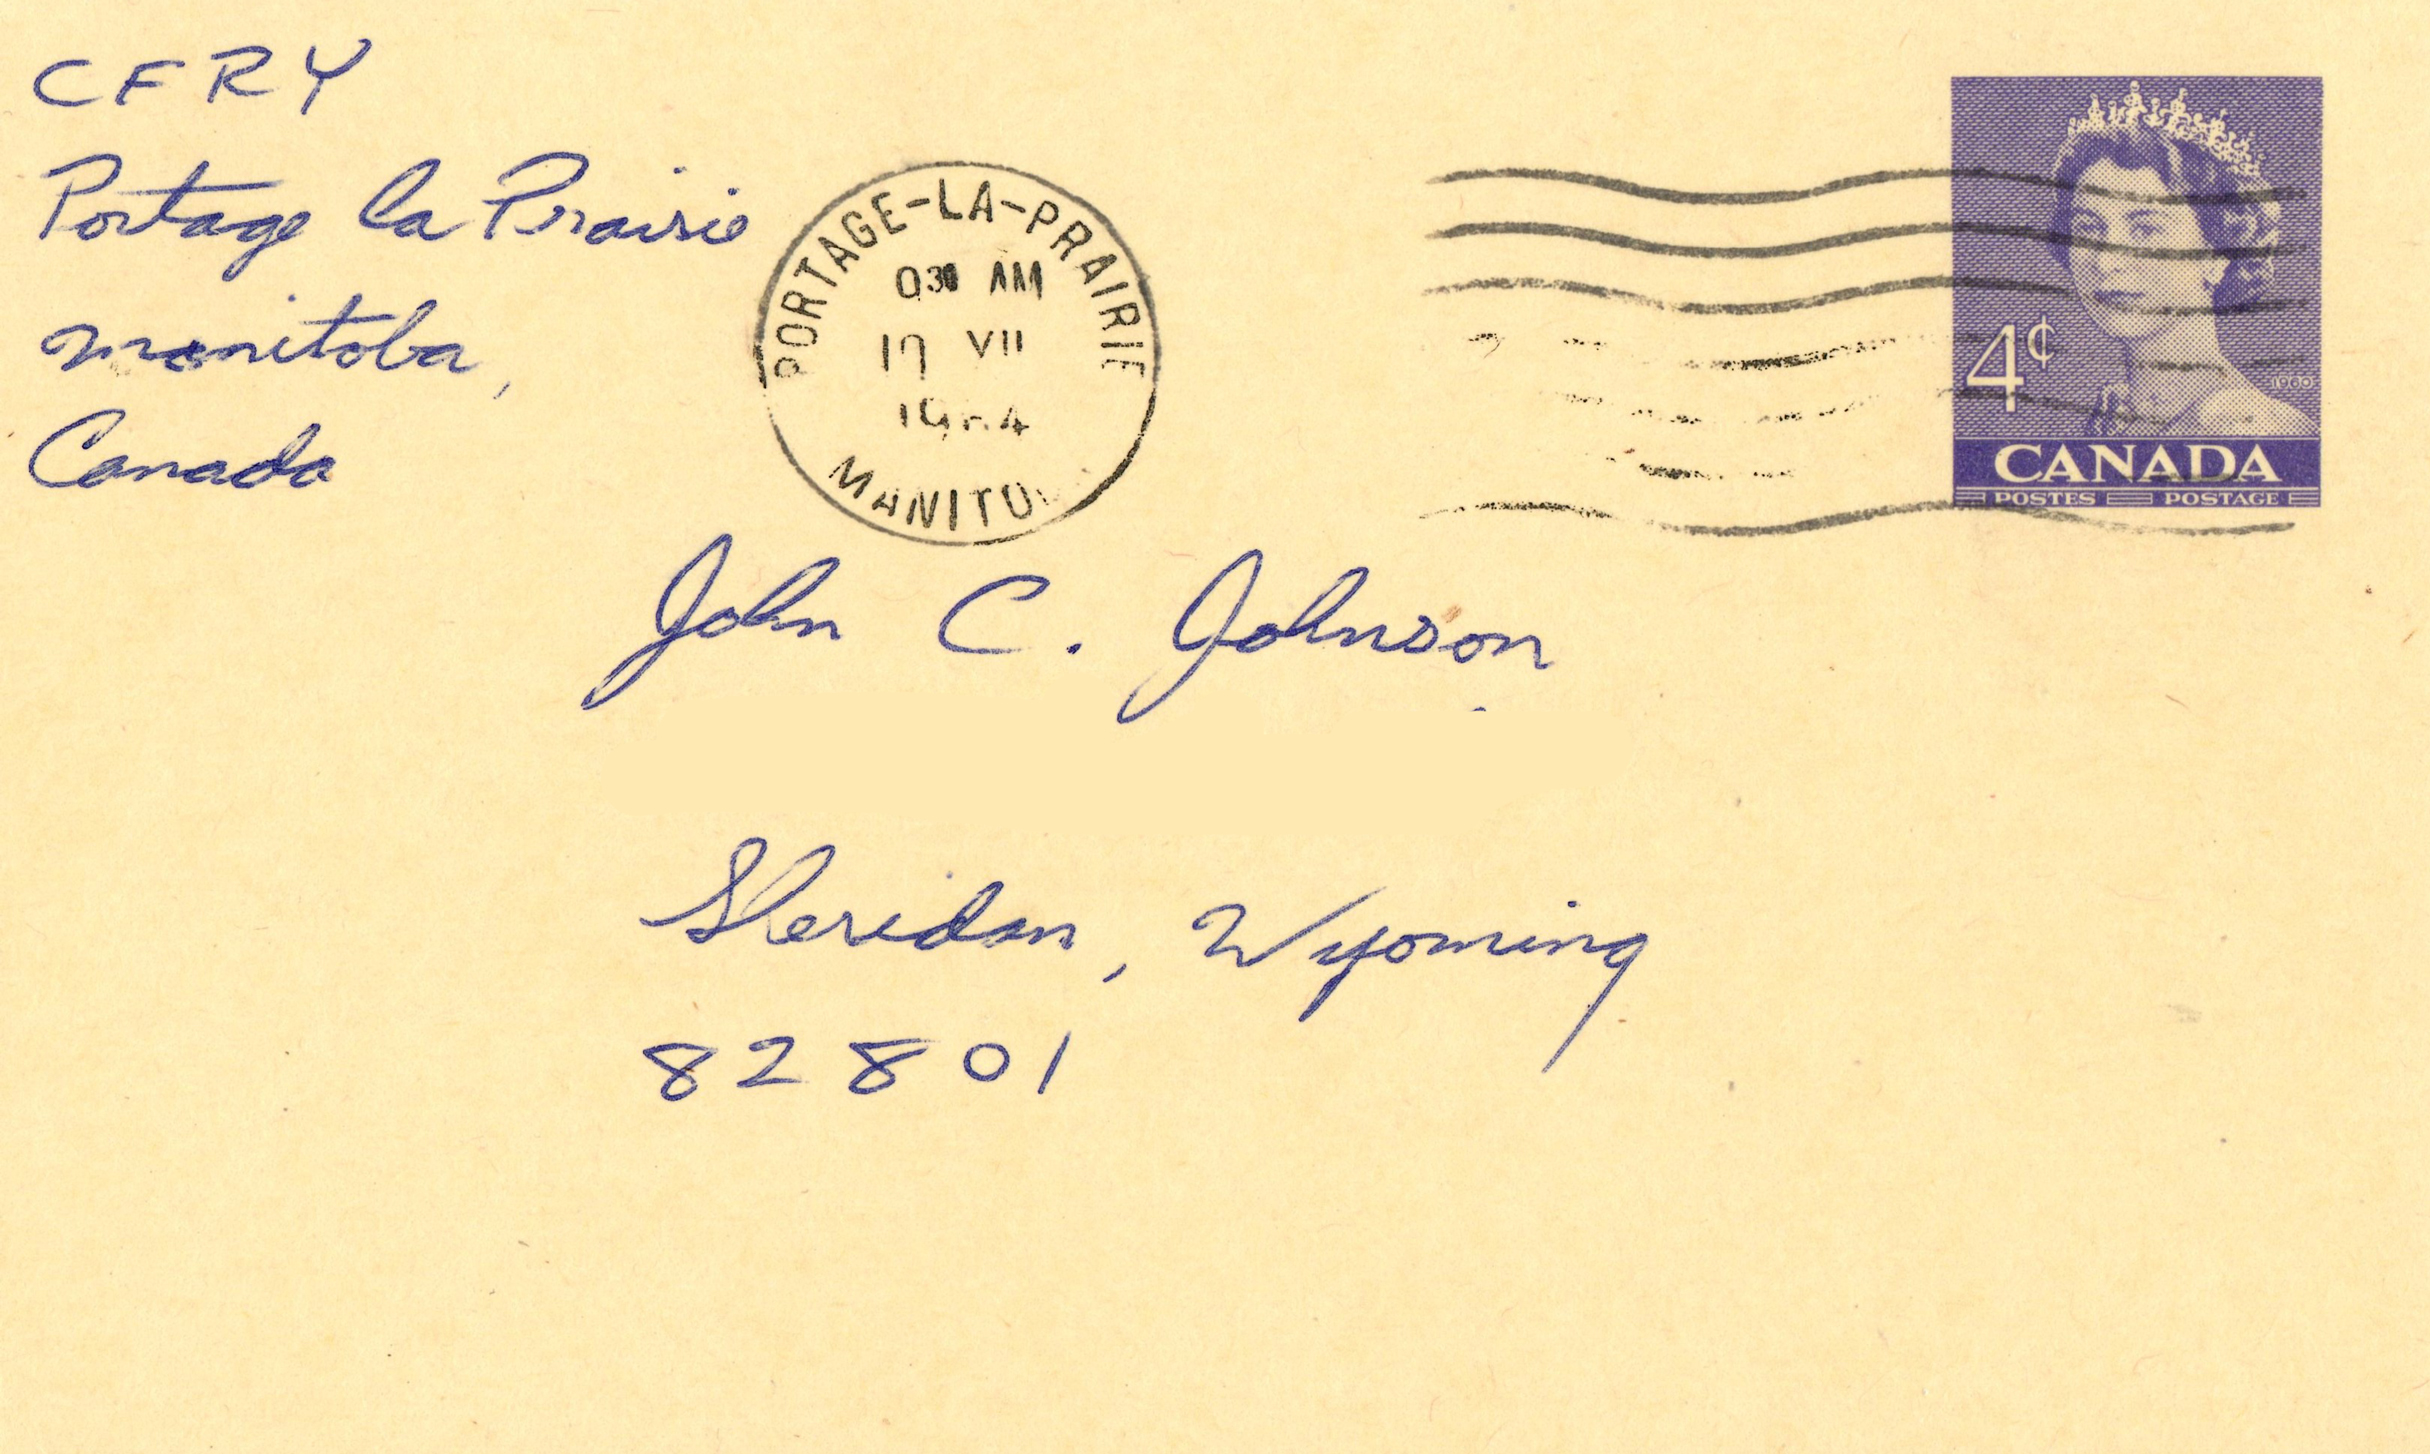 CFRY
Portage la Prairie
Manitoba,
Canada
PORTAGE-LA-PRAIRIE
AM
17 VII
MANITO
4¢
1960
CANADA
POSTES POSTAGE
John C. Johnson
Sheridan, Wyoming
82801